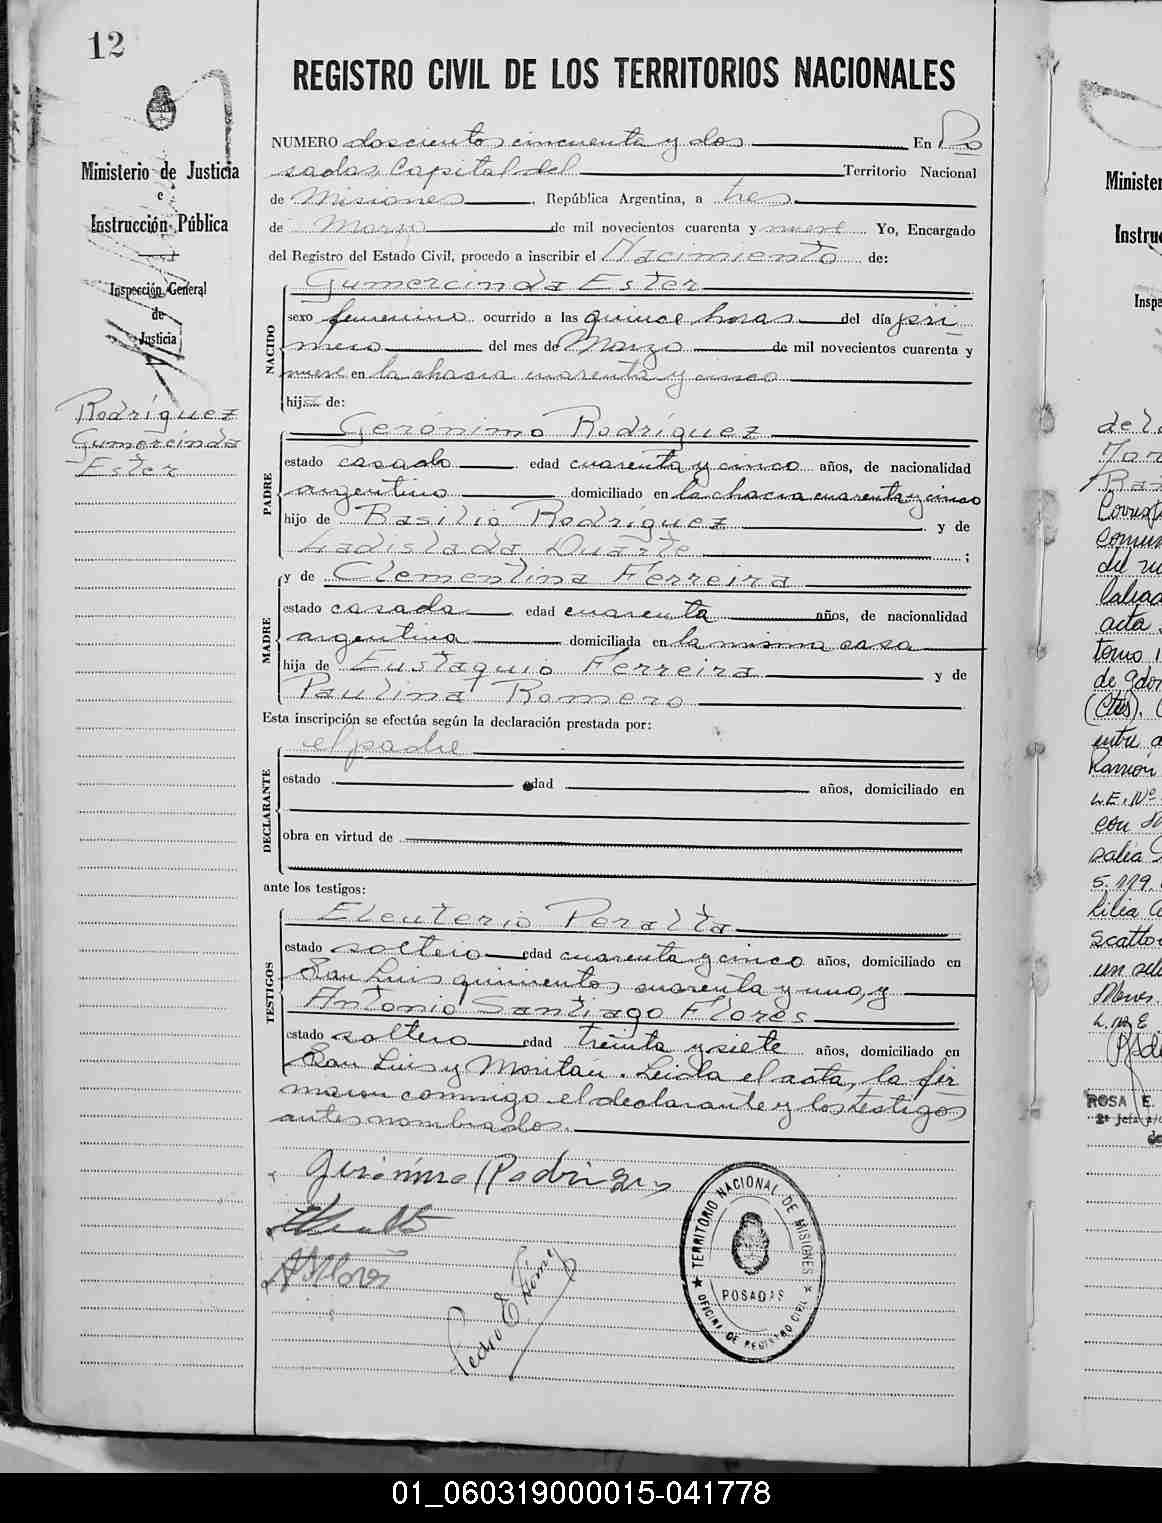 12
Ministerio de Justicia
e
Instrucción Pública
Inspección General
de
Justicia
Rodríguez
Gumercinda
Ester
REGISTRO CIVIL DE LOS TERRITORIOS NACIONALES
NUMERO doscientos cincuenta y dos En Po
sadas Capital del Territorio Nacional
de Misiones, República Argentina, a tres
de Marzo de mil novecientos cuarenta y nueve Yo, Encargado
del Registro del Estado Civil, procedo a inscribir el Nacimiento de:
NACIDO
Gumercinda Ester
sexo femenino ocurrido a las quince horas del día pri
mero del mes de Marzo de mil novecientos cuarenta y
nueve en la chacra cuarenta y cinco
hija de:
PADRE
Gerónimo Rodríguez
estado casado edad cuarenta y cinco años, de nacionalidad
argentino domiciliado en la chacra cuarenta y cinco
hijo de Basilio Rodríguez y de
Ladislada Duarte ;
MADRE
y de Clementina Ferreira
estado casada edad cuarenta años, de nacionalidad
argentina domiciliada en la misma casa
hija de Eustaquio Ferreira y de
Paulina Romero
Esta inscripción se efectúa según la declaración prestada por:
DECLARANTE
el padre
estado edad años, domiciliado en
obra en virtud de
ante los testigos:
TESTIGOS
Eleuterio Peralta
estado soltero edad cuarenta y cinco años, domiciliado en
San Luis quinientos cuarenta y uno, y
Antonio Santiago Flores
estado soltero edad treinta y siete años, domiciliado en
San Luis y Moritán. Leida el acta, la fir
maron conmigo el declarante y los testigos
antes nombrados.
Gerónimo Rodriguez
ASFlores
Pedro E. Gómez
TERRITORIO NACIONAL DE MISIONES
POSADAS
OFICINA DE REGISTRO CIVIL
Minister
Instruc
Inspe
del
comun
acta
tomo 1
(Ctes).
entre
Ramón
L.E. Nº
con
5.119.
Lilia
un
ROSA E.
2ª Jefa
de
01_060319000015-041778